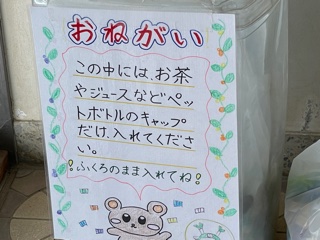 おねがい
この中には、お茶
やジュースなどペッ
トボトルのキャップ
だけ、入れてくださ
い。
!ふくろのまま入れてね!